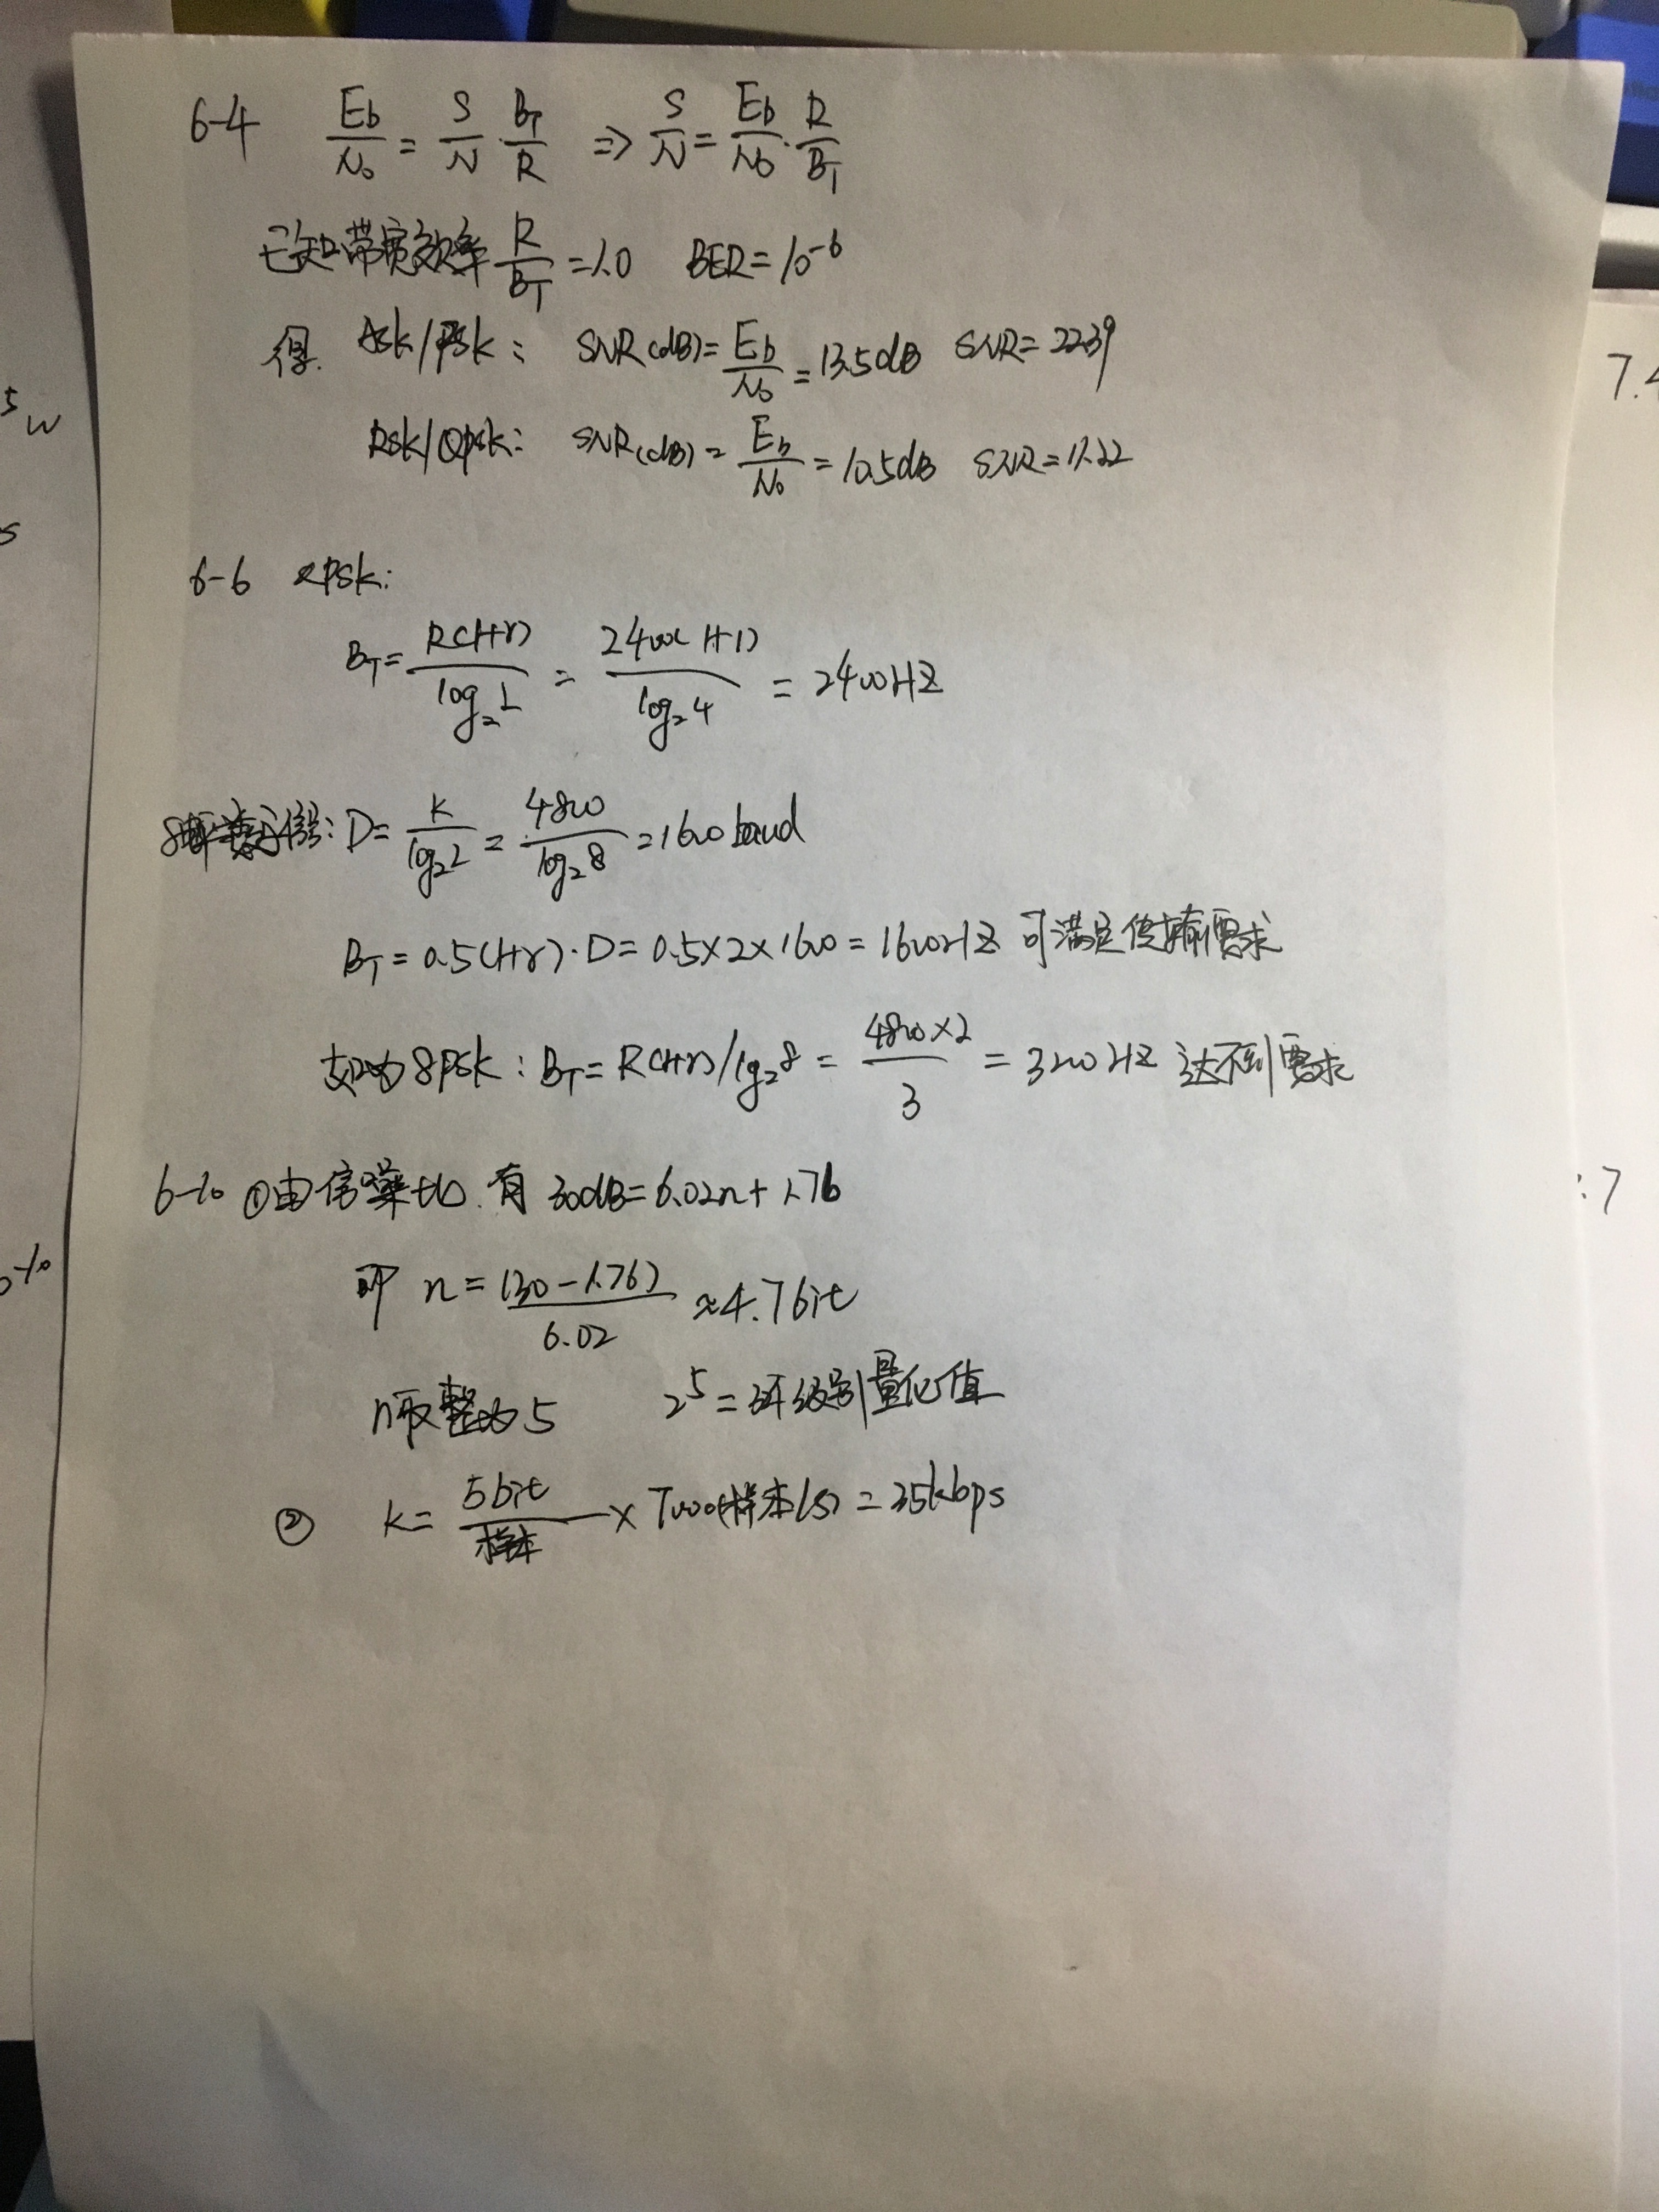 6-4 Eb/N₀ = S/N · B_T/R ⇒ S/N = Eb/N₀ · R/B_T
已知带宽效率 R/B_T = 1.0 BER = 10⁻⁶
得. ASK/FSK: SNR(dB) = Eb/N₀ = 13.5dB SNR = 22.39
PSK/QPSK: SNR(dB) = Eb/N₀ = 10.5dB SNR = 11.22
6-6 QPSK:
B_T = R(1+r)/log₂L = 2400(1+1)/log₂4 = 2400HZ
信号: D = R/log₂L = 4800/log₂8 = 1600 baud
B_T = 0.5(1+r)·D = 0.5×2×1600 = 1600HZ 可满足传输需求
如为8PSK: B_T = R(1+r)/lg₂8 = 4800×2/3 = 3200HZ 达不到需求
6-10 ①由信噪比.有 30dB = 6.02n + 1.76
即 n = (30-1.76)/6.02 ≈ 4.7bit
n取整为5 2⁵ = 级别量化值
② R = 5bit/样本 × 7000(样本/s) = 35kbps
5 w
s
7.4
:7